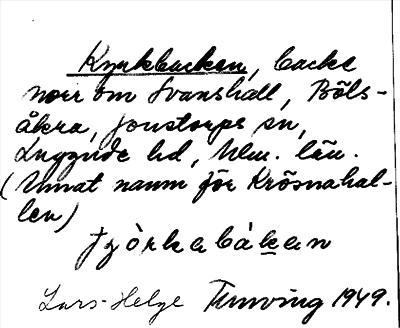 Kyrkbacken, backe
norr om Svanshall, Böls-
åkra, Jonstorps sn,
Luggude hd, Mlm. län.
(Annat namn för Krösnahal-
len)
Lars-Helge Tunving 1949.